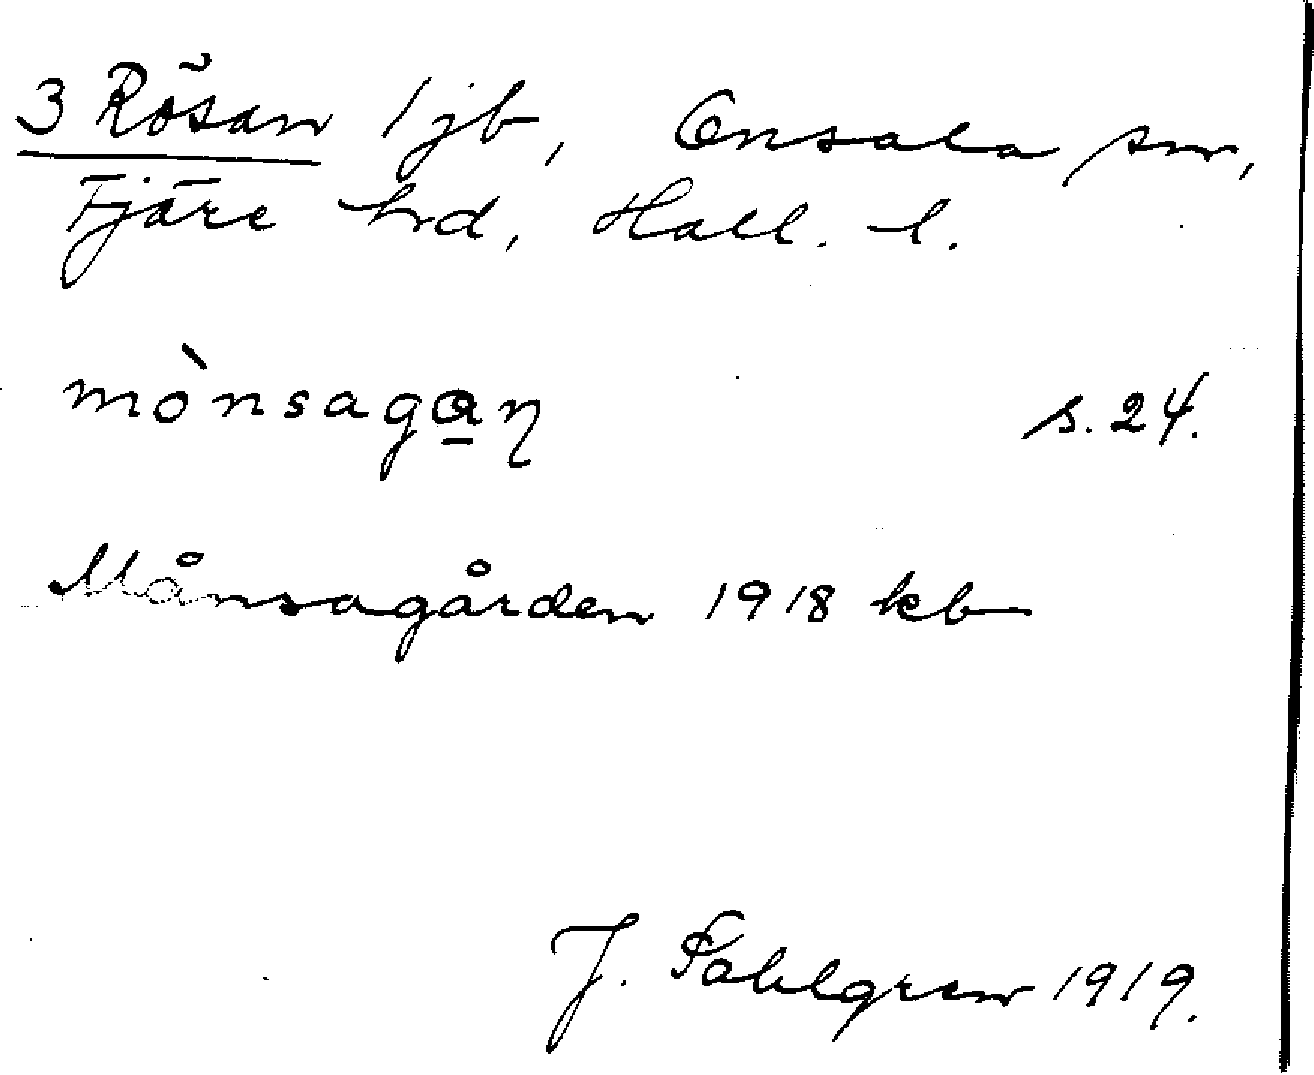 3 Rösan 1 jb, Onsala sn,
Fjäre hrd, Hall. l.
mònsagan̡ s. 24.
Månsagården 1918 kb
J. Sahlgren 1919.